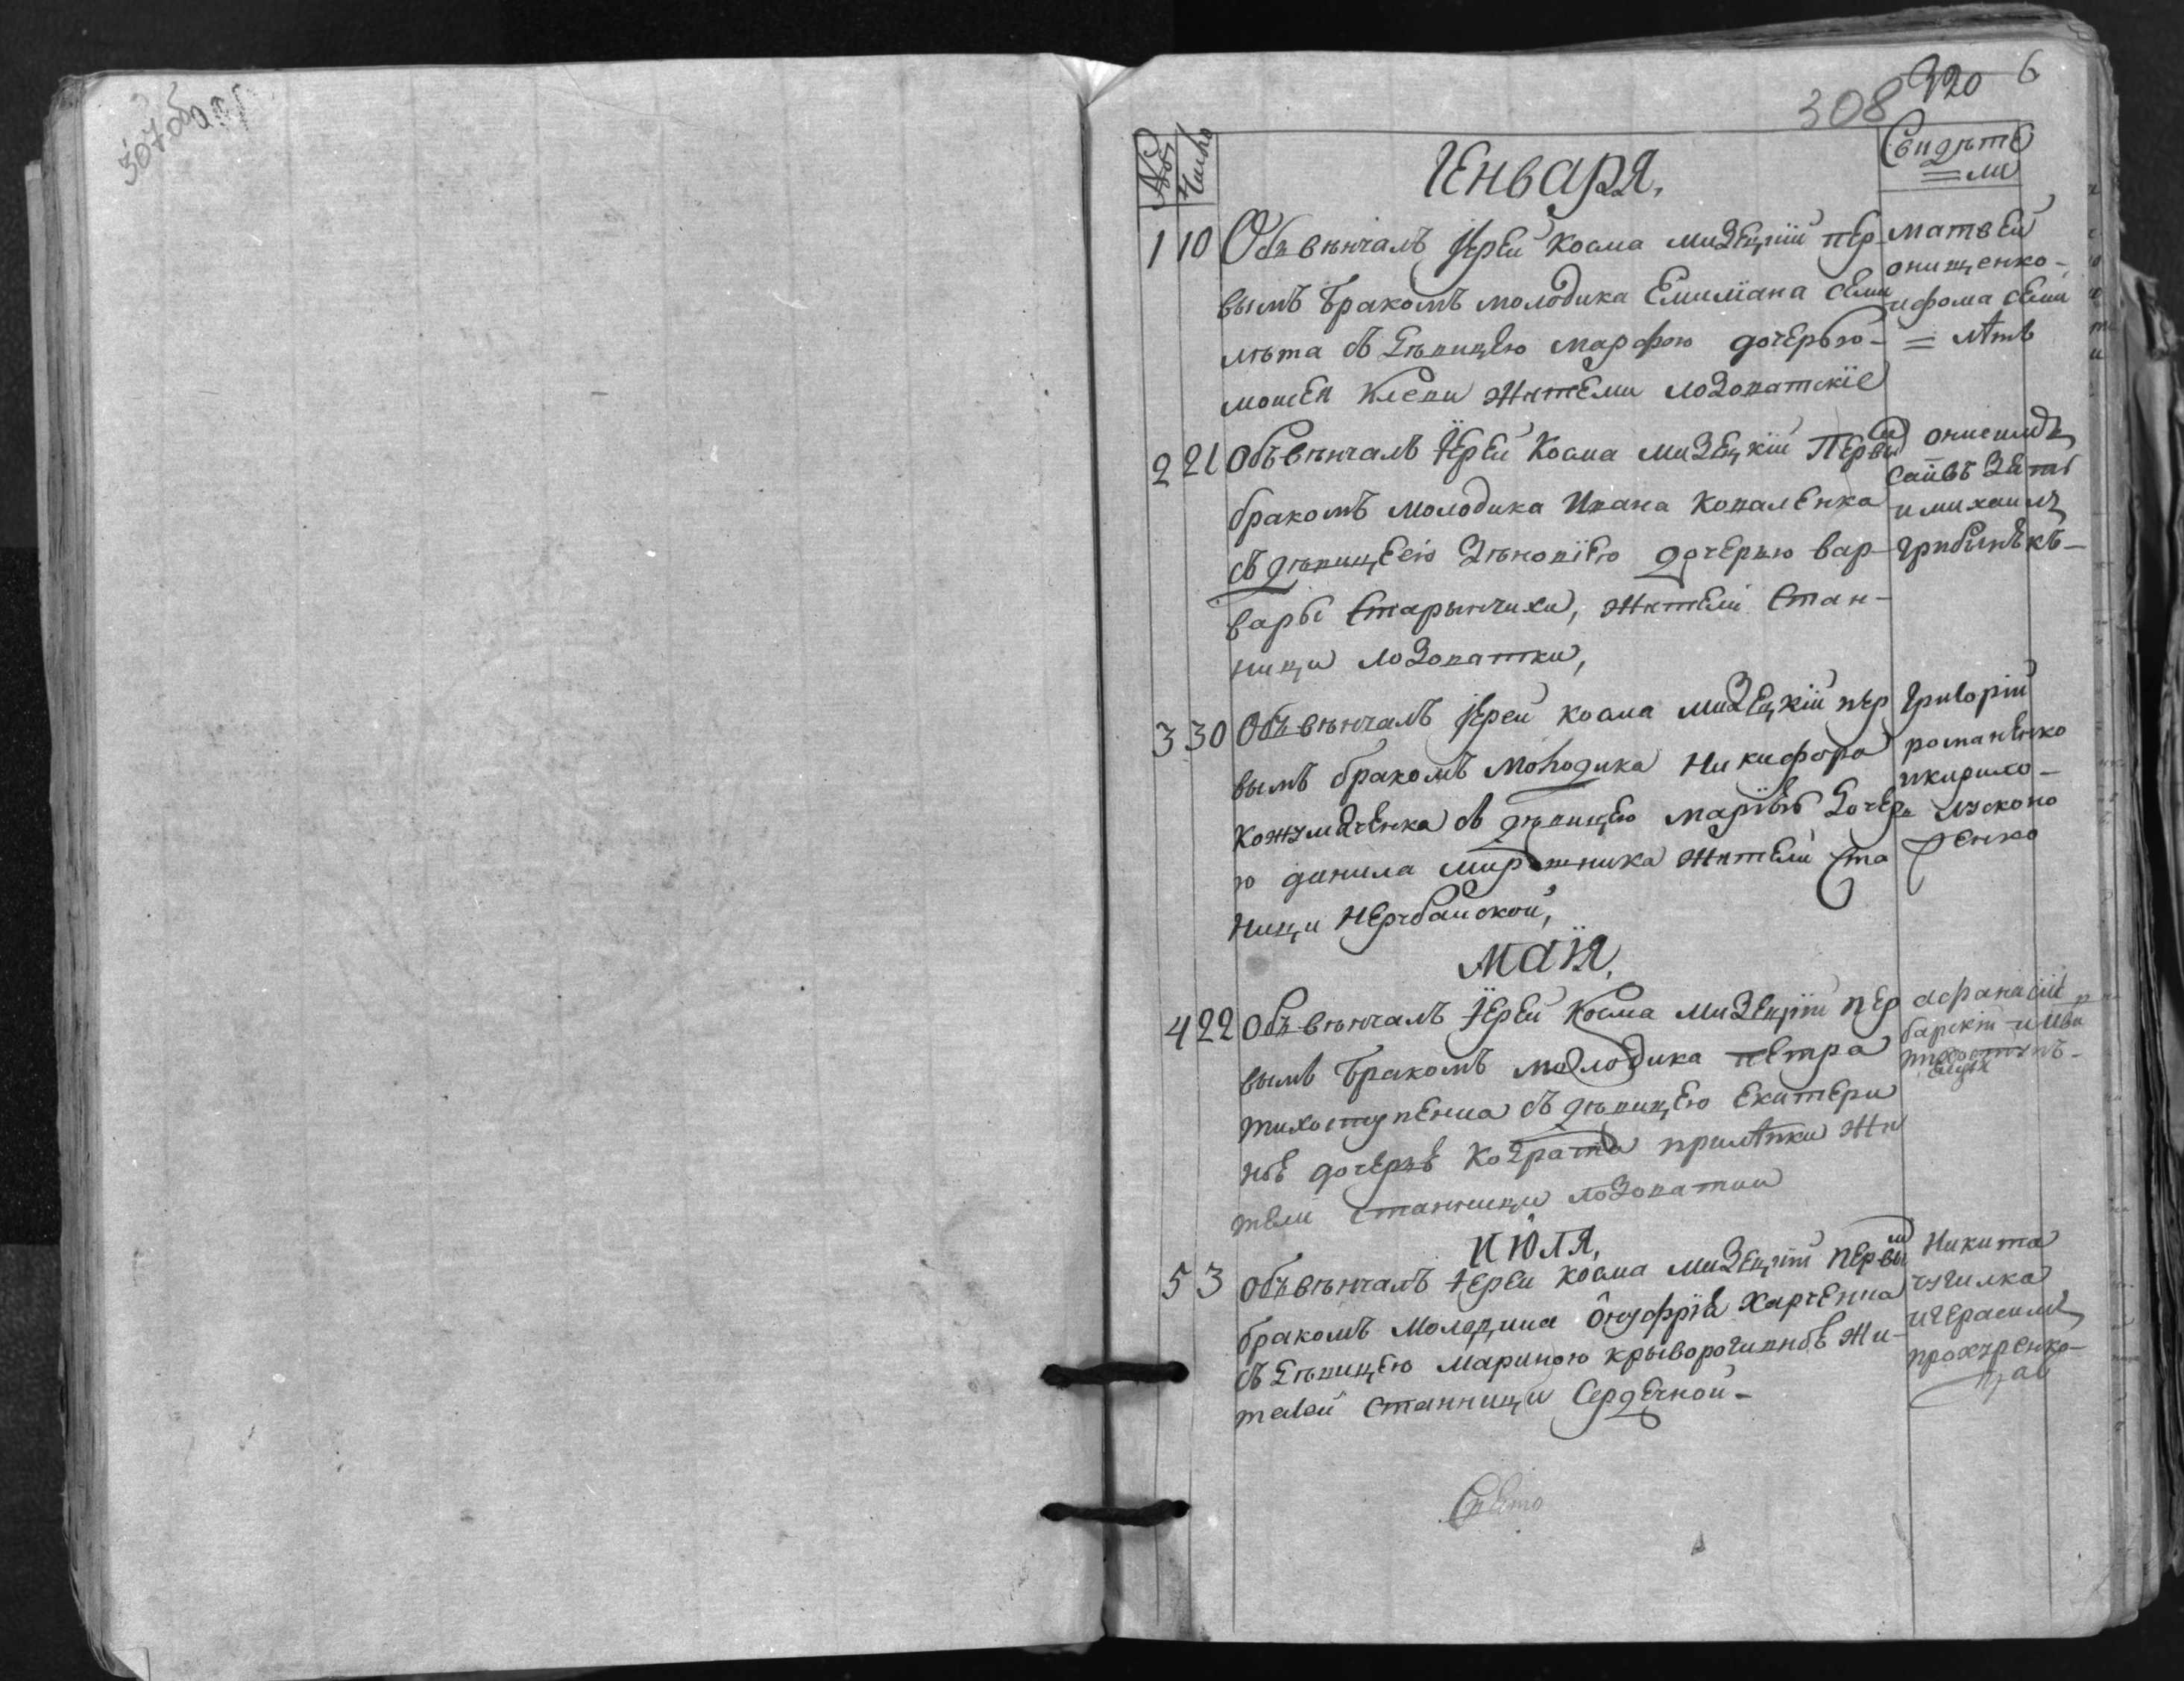 307об
308 320 6
№ Число
Свидѣте
=ли
Генваря,
1 10 Объвѣнчалъ Іерей Косма Мизецкій пер
вымъ бракомъ молодика Емиліана Семи
лѣта съ дѣвицею Марфою дочерью
Моисея Клепи жителми лозоватскіе
Матвей
онищенко
ифома семи
=лѣтъ
2 21 Объвѣнчалъ Іерей Косма Мизецкій Первы
бракомъ молодика Ивана Коваленка
съ дѣвицеею Зѣновіею дочерью вар
вары Старынчихи, жителі Стан-
ници лозоватки,
зять
имихаилъ
3 30 Объвѣнчалъ Іерей косма Мизецкій пер
вымъ бракомъ Молодика Никифора
Кожумяченка съ дѣвицею маріею дочер
ю данила мирошника жителй Ста
ници Нерубайской,
Григорій
романенко
икирило
Маія,
4 22 Объвѣнчалъ Іерей Косма Мизецкій пер
вымъ бракомъ молодика петра
тихоступенка съ дѣвицею Екатери
ною дочерью Кодрата прилѣпки жи
тели станници лозоватки
афанасій
Июля,
5 3 объвѣнчалъ Іерей косма Мизецкій первы
бракомъ Молодика Онуфрія Харченка
съ дѣвицею Мариною крыворочивною жи-
телей станници Сердечной-
Никита
чугилка
игерасимъ
прохуренко